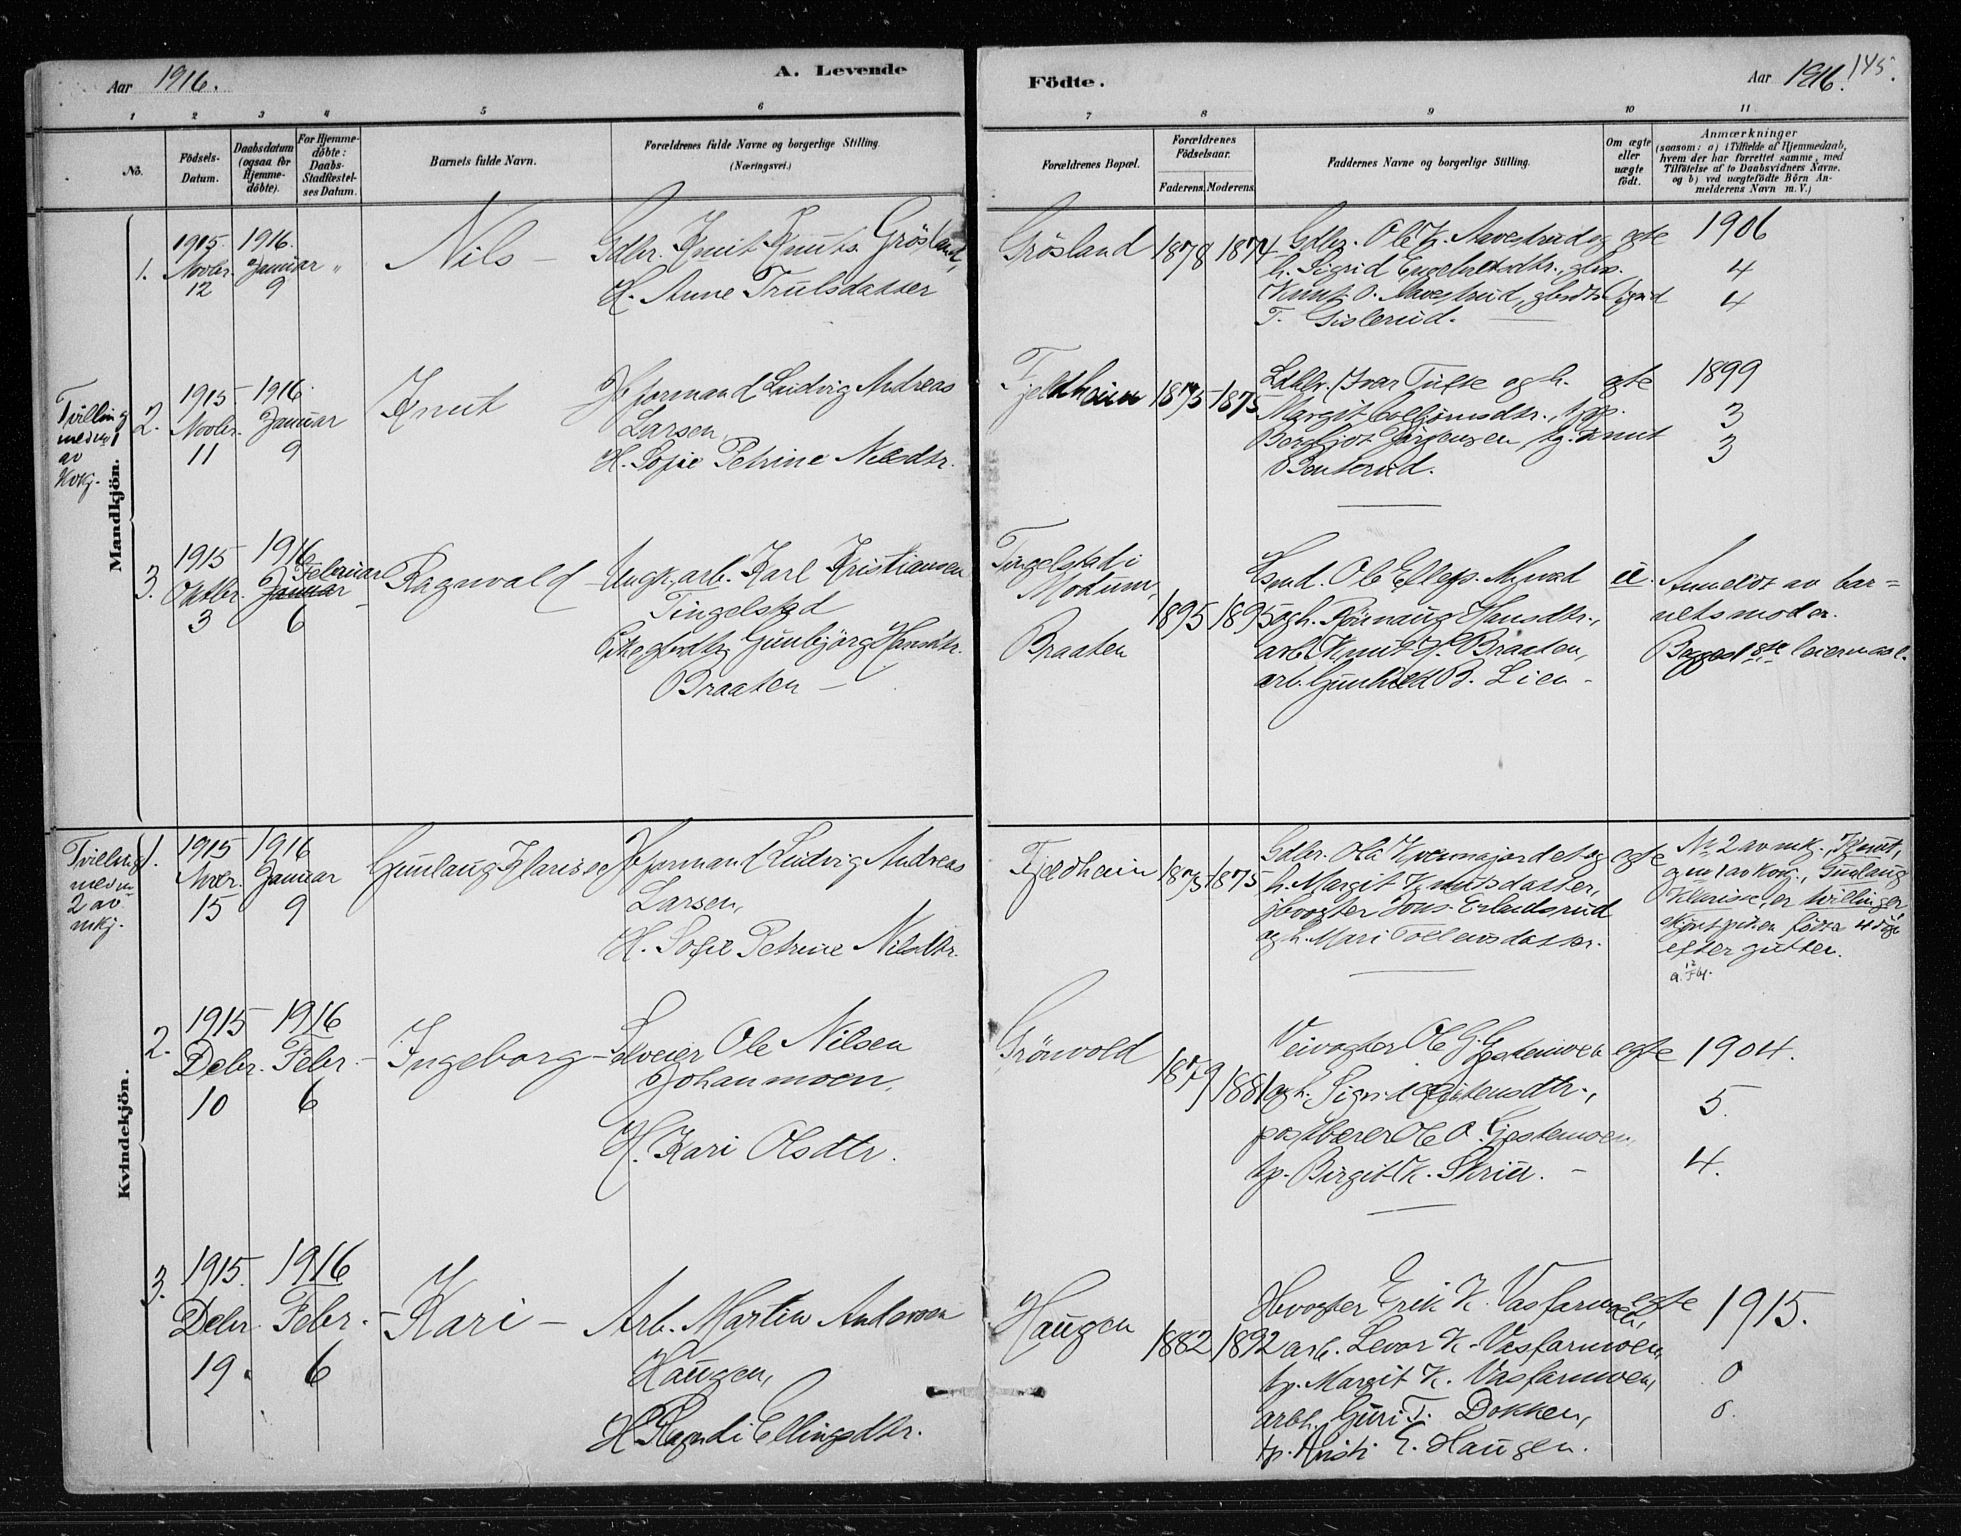 Aar 1916.
A. Levende
Födte.
Aar 1916.
145.
1 2 3 4 5 6 7 8 9 10 11
No.
Födsels-
Datum.
Daabsdatum
(ogsaa for
Hjemme-
döbte).
For Hjemme-
döbte:
Daabs-
Stadfæstel-
ses Datum.
Barnets fulde Navn.
Forældrenes fulde Navne og borgerlige Stilling.
(Næringsvei.)
Forældrenes Bopæl.
Forældrenes
Födselsaar.
Faderens. Moderens.
Faddernes Navne og borgerlige Stilling.
Om ægte
eller
uægte
födt.
Anmærkninger
(saasom: a) i Tilfælde af Hjemmedaab,
hvem der har forrettet samme, med
Tilföielse af to Daabsvidners Navne.
og b) ved uægtefödte Börn An-
melderens Navn m. V.)
Mandkjön.
1.
1915.
Novbr.
12
1916.
Januar
9
"
Nils —
Gdbr. Knut Knuts. Grösland,
H. Anne Trulsdatter
Grösland
1878
1874
Gdbr. Ole K. Aavestrud og
h. Sigrid Engebretsdtr.,
Knut O. Aavestrud, Sigrid
T. Gislerud.
egte
1906
4
4
Tvilling
med nr 1
av
Kvkj.
2.
1915
Novbr.
11
1916.
Januar
9
Knut
Hformand Ludvig Andreas
Larsen,
H. Sofie Petrine Nilsdtr.
Fjeldheim
1875
1875
Ivar Tufte og h.
Margit
Bergljot Jörgensen, Knut
Benterud.
egte
1899
3
3
3.
1915
Oktbr.
3
1916
Februar
Januar
6
Ragnvald —
Ungk. arb. Karl Kristiansen
Tingelstad
Pike Gunbjörg Hansdtr.
Braaten —
Tingelstad i
Modum,
Braaten
1895
1895
Ole Ellefs.
og h. Hansdtr.,
arb. Knut H. Braaten,
arb. Gunhild B. Lien -
u.
Anmeldt av bar=
nets moder.
Begges 1ste leiermaal.
Kvindekjön.
Tvilling
med nr
2 av
mkj.
1.
1915
Nvbr.
15
1916
Januar
9
Gunlaug Klarisse
Hformand Ludvig Andreas
Larsen,
H. Sofie Petrine Nilsdtr.
Fjeldheim
1875
1875
Gdbr. Ola Kvernajordet og
h. Margit Knutsdatter,
jbvogter Erlandsrud
og h. Mari Tollevsdatter.
egte
Nr 2 av mkj., Knut,
og nr 1 av kvkj., Gunlaug
Klarisse, er tvillinger,
skjönt piken födtes 4 dage
efter gutten.
2.
1915
Debr.
10
1916
Febr.
6
Ingeborg —
Ole Nilsen
Johanmoen,
H. Kari Olsdtr.
Grönvold
1879
1881
Veivogter Ole G. Gjestemoen
og h. Sigrid
postbærer Ole O. Gjestemoen,
tp. Birgit K. Skrin. —
egte
1904.
5.
4.
3.
1915.
Debr.
19.
1916
Febr.
6
Kari —
Arb. Martin Andersen
Haugen,
H. Ragndi Ellingsdtr.
Haugen
1882
1892
Erik K. Vasfarmoen,
arb. Levor K. Vasfarmoen,
tp. Margit K. Vasfarmoen,
arbh. Guri T. Dokken,
tp. Kristi E. Haugen.
egte
1915.
0
0.